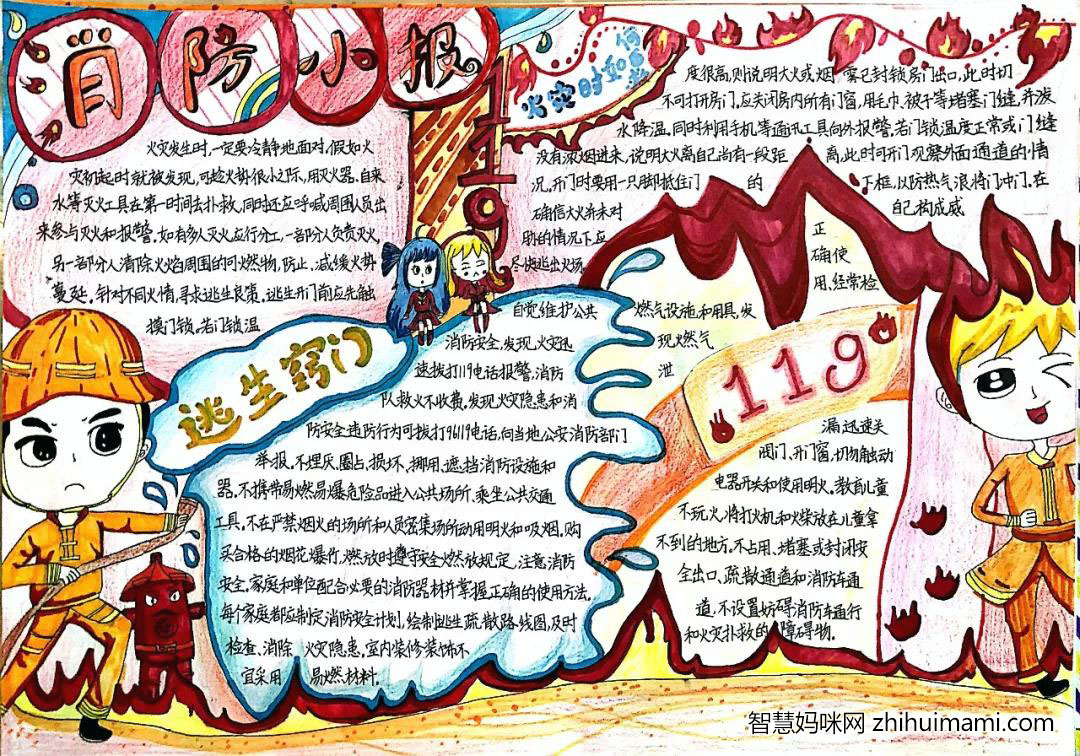 消防小报
119
火灾时如何
火灾发生时,一定要冷静地面对,假如火
灾初起时就被发现,可趁火势很小之际,用灭火器、自来
水等灭火工具在第一时间去扑救,同时还应呼喊周围人员出
来参与灭火和报警。如有多人灭火应行分工,一部分人负责灭火,
另一部分人清除火焰周围的可燃物,防止、减缓火势
蔓延。针对不同火情,寻求逃生良策。逃生开门前应先触
摸门锁,若门锁温
度很高,则说明大火或烟雾已封锁房门出口,此时切
不可打开房门。应关闭房内所有门窗,用毛巾、被子等堵塞门缝,并泼
水降温。同时利用手机等通讯工具向外报警。若门锁温度正常或门缝
没有浓烟进来,说明大火离自己尚有一段距离,此时可开门观察外面通道的情
况。开门时要用一只脚抵住门的下框,以防热气浪将门冲门。在
确信大火并未对自己构成威
胁的情况下,应
尽快逃出火场。
逃生窍门
自觉维护公共
消防安全,发现火灾迅
速拨打119电话报警,消防
队救火不收费。发现火灾隐患和消
防安全违防行为可拨打96119电话,向当地公安消防部门
举报。不埋压、圈占、损坏、挪用、遮挡消防设施和
器。不携带易燃易爆危险品进入公共场所、乘坐公共交通
工具。不在严禁烟火的场所和人员密集场所动用明火和吸烟。购
买合格的烟花爆竹,燃放时遵守安全燃放规定,注意消防
安全。家庭和单位配合必要的消防器材并掌握正确的使用方法。
每个家庭都应制定消防安全计划,绘制逃生疏散路线图,及时
检查、消除火灾隐患。室内装修装饰不
宜采用易燃材料。
正
确使
用、经常检
燃气设施和用具,发
现燃气
泄
119
漏迅速关
阀门、开门窗,切勿触动
电器开关和使用明火。教育儿童
不玩火,将打火机和火柴放在儿童拿
不到的地方。不占用、堵塞或封闭安
全出口、疏散通道和消防车通
道,不设置妨碍消防车通行
和火灾扑救的障碍物。
智慧妈咪网 zhihuimami.com